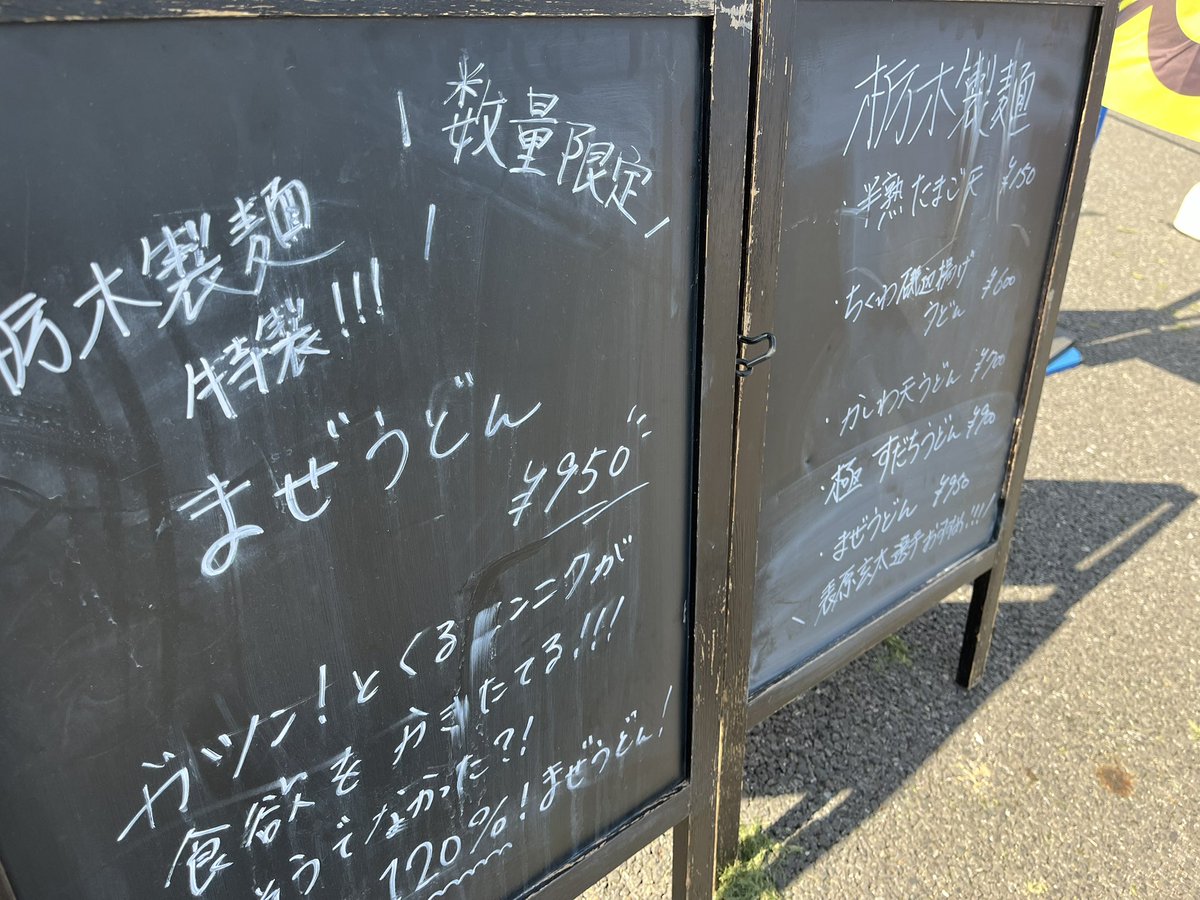 数量限定
栃木製麺
特製!!!
まぜうどん
¥950
ガツン!とくるニンニクが
食欲をかきたてる!!!
そうでなかった?!
120%!まぜうどん!
栃木製麺
・半熟たまご天 ¥150
・ちくわ磯辺揚げ
うどん ¥600
・かしわ天うどん ¥700
・極 すだちうどん ¥900
・まぜうどん ¥950
表原玄太選手おすすめ!!!